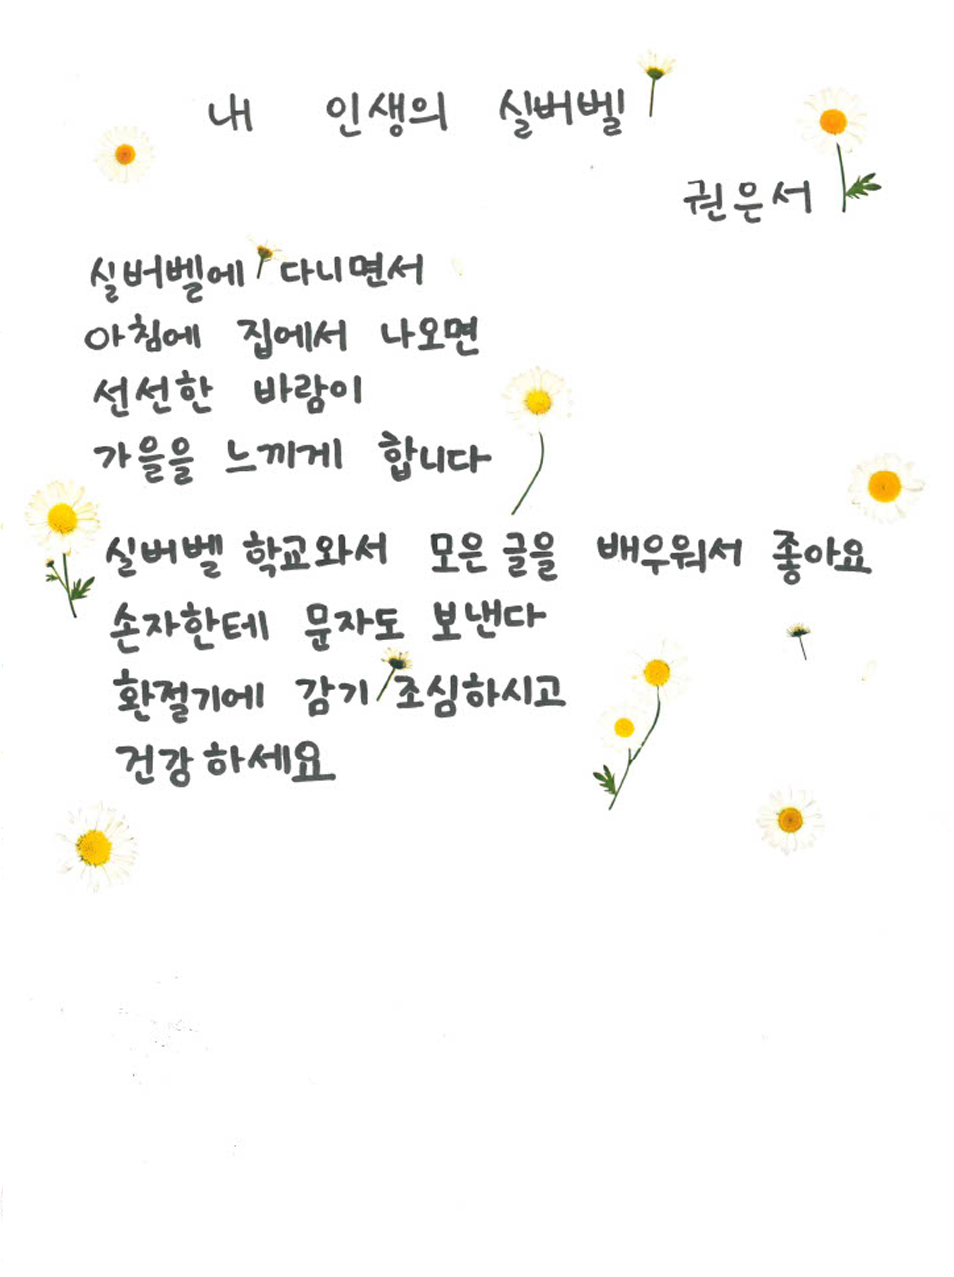 내 인생의 실버벨
권은서
실버벨에 다니면서
아침에 집에서 나오면
선선한 바람이
가을을 느끼게 합니다
실버벨 학교와서 모은글을 배우워서 좋아요
손자한테 문자도 보낸다
환절기에 감기 조심하시고
건강하세요